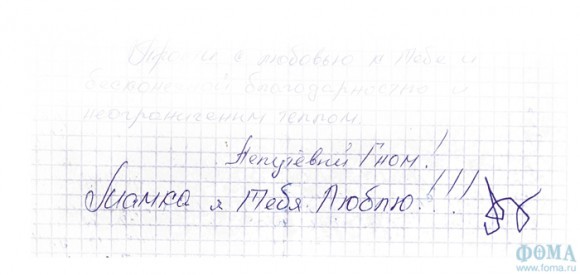 с любовью к Тебе и
благодарностью и
неограниченим теплом.
Непутёвый Гном!
Мамка я Тебя Люблю!!!
ФОМА
www.foma.ru